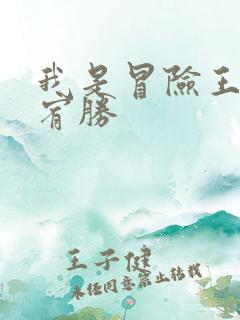 我是冒險王
宥勝
王子健
未经同意禁止转载